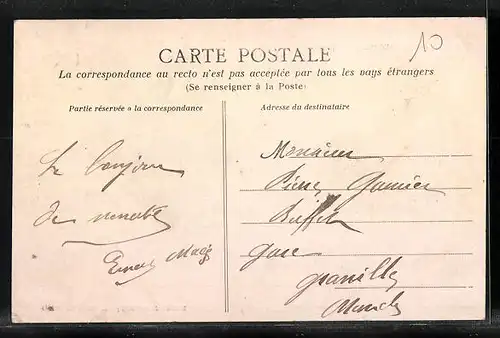 10
CARTE POSTALE
La correspondance au recto n'est pas acceptée par tous les pays étrangers
(Se renseigner à la Poste)
Partie réservée à la correspondance
Adresse du destinataire
Un bonjour
de
Ernest
Monsieur
Pierre Garnier
Buffet
gare
Granville
Manche